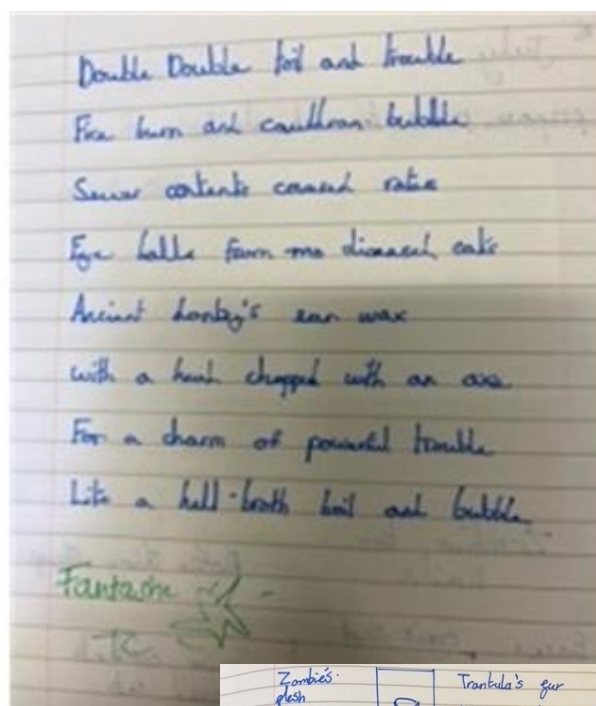 Double Double toil and trouble
Fire burn and cauldran bubble
Sewer contents coverd
Eye balls from diseased cats
Ancient donkey's ear wax
with a head chopped with an axe
For a charm of powerful trouble
Like a hell-broth boil and bubble
Fantastic
TC
Zombie's
flesh
Trantula's fur